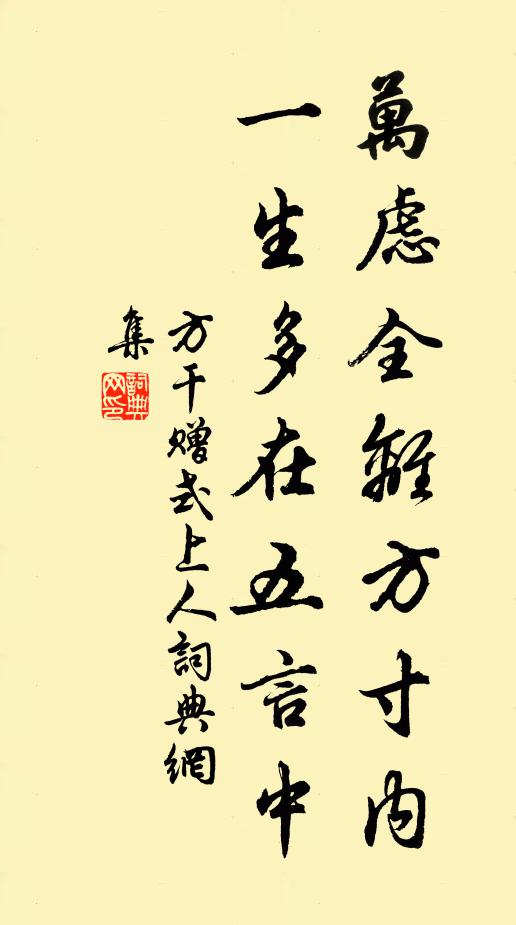 萬慮全離方寸內
一生多在五言中
方干贈式上人詞典網
集
詞典
网印